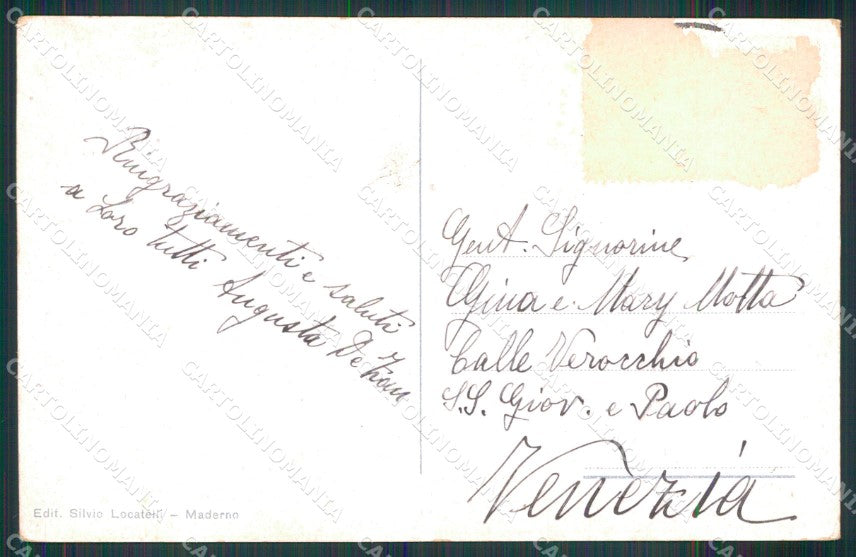 Ringraziamenti e saluti
a Loro tutti Augusta De
Gent. Signorine
Gina e Mary Motta
Calle Verocchio
S.S. Giov. e Paolo
Venezia
Edit. Silvio Locatelli — Maderno
CARTOLINOMANIA